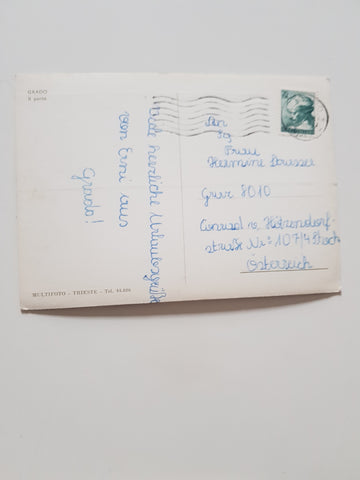 GRADO
Il porto
Viele herzliche Urlaubsgrüße
von Erni aus
Grado!
Frau
Hermine
Graz 8010
Conrad v. Hötzendorf
straße Nr. 107/4. Stock
Österreich
MULTIFOTO - TRIESTE - Tel.